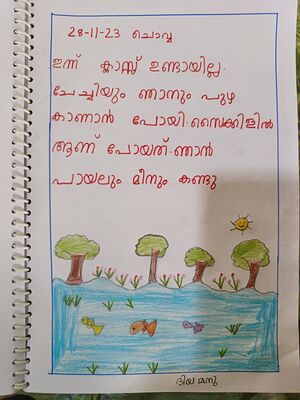 28-11-23 ചൊവ്വ
ഇന്ന് ക്ലാസ്സ് ഉണ്ടായില്ല.
ചേച്ചിയും ഞാനും പുഴ
കാണാൻ പോയി. സൈക്കിളിൽ
ആണ് പോയത്. ഞാൻ
പായലും മീനും കണ്ടു
ദിയ മനു